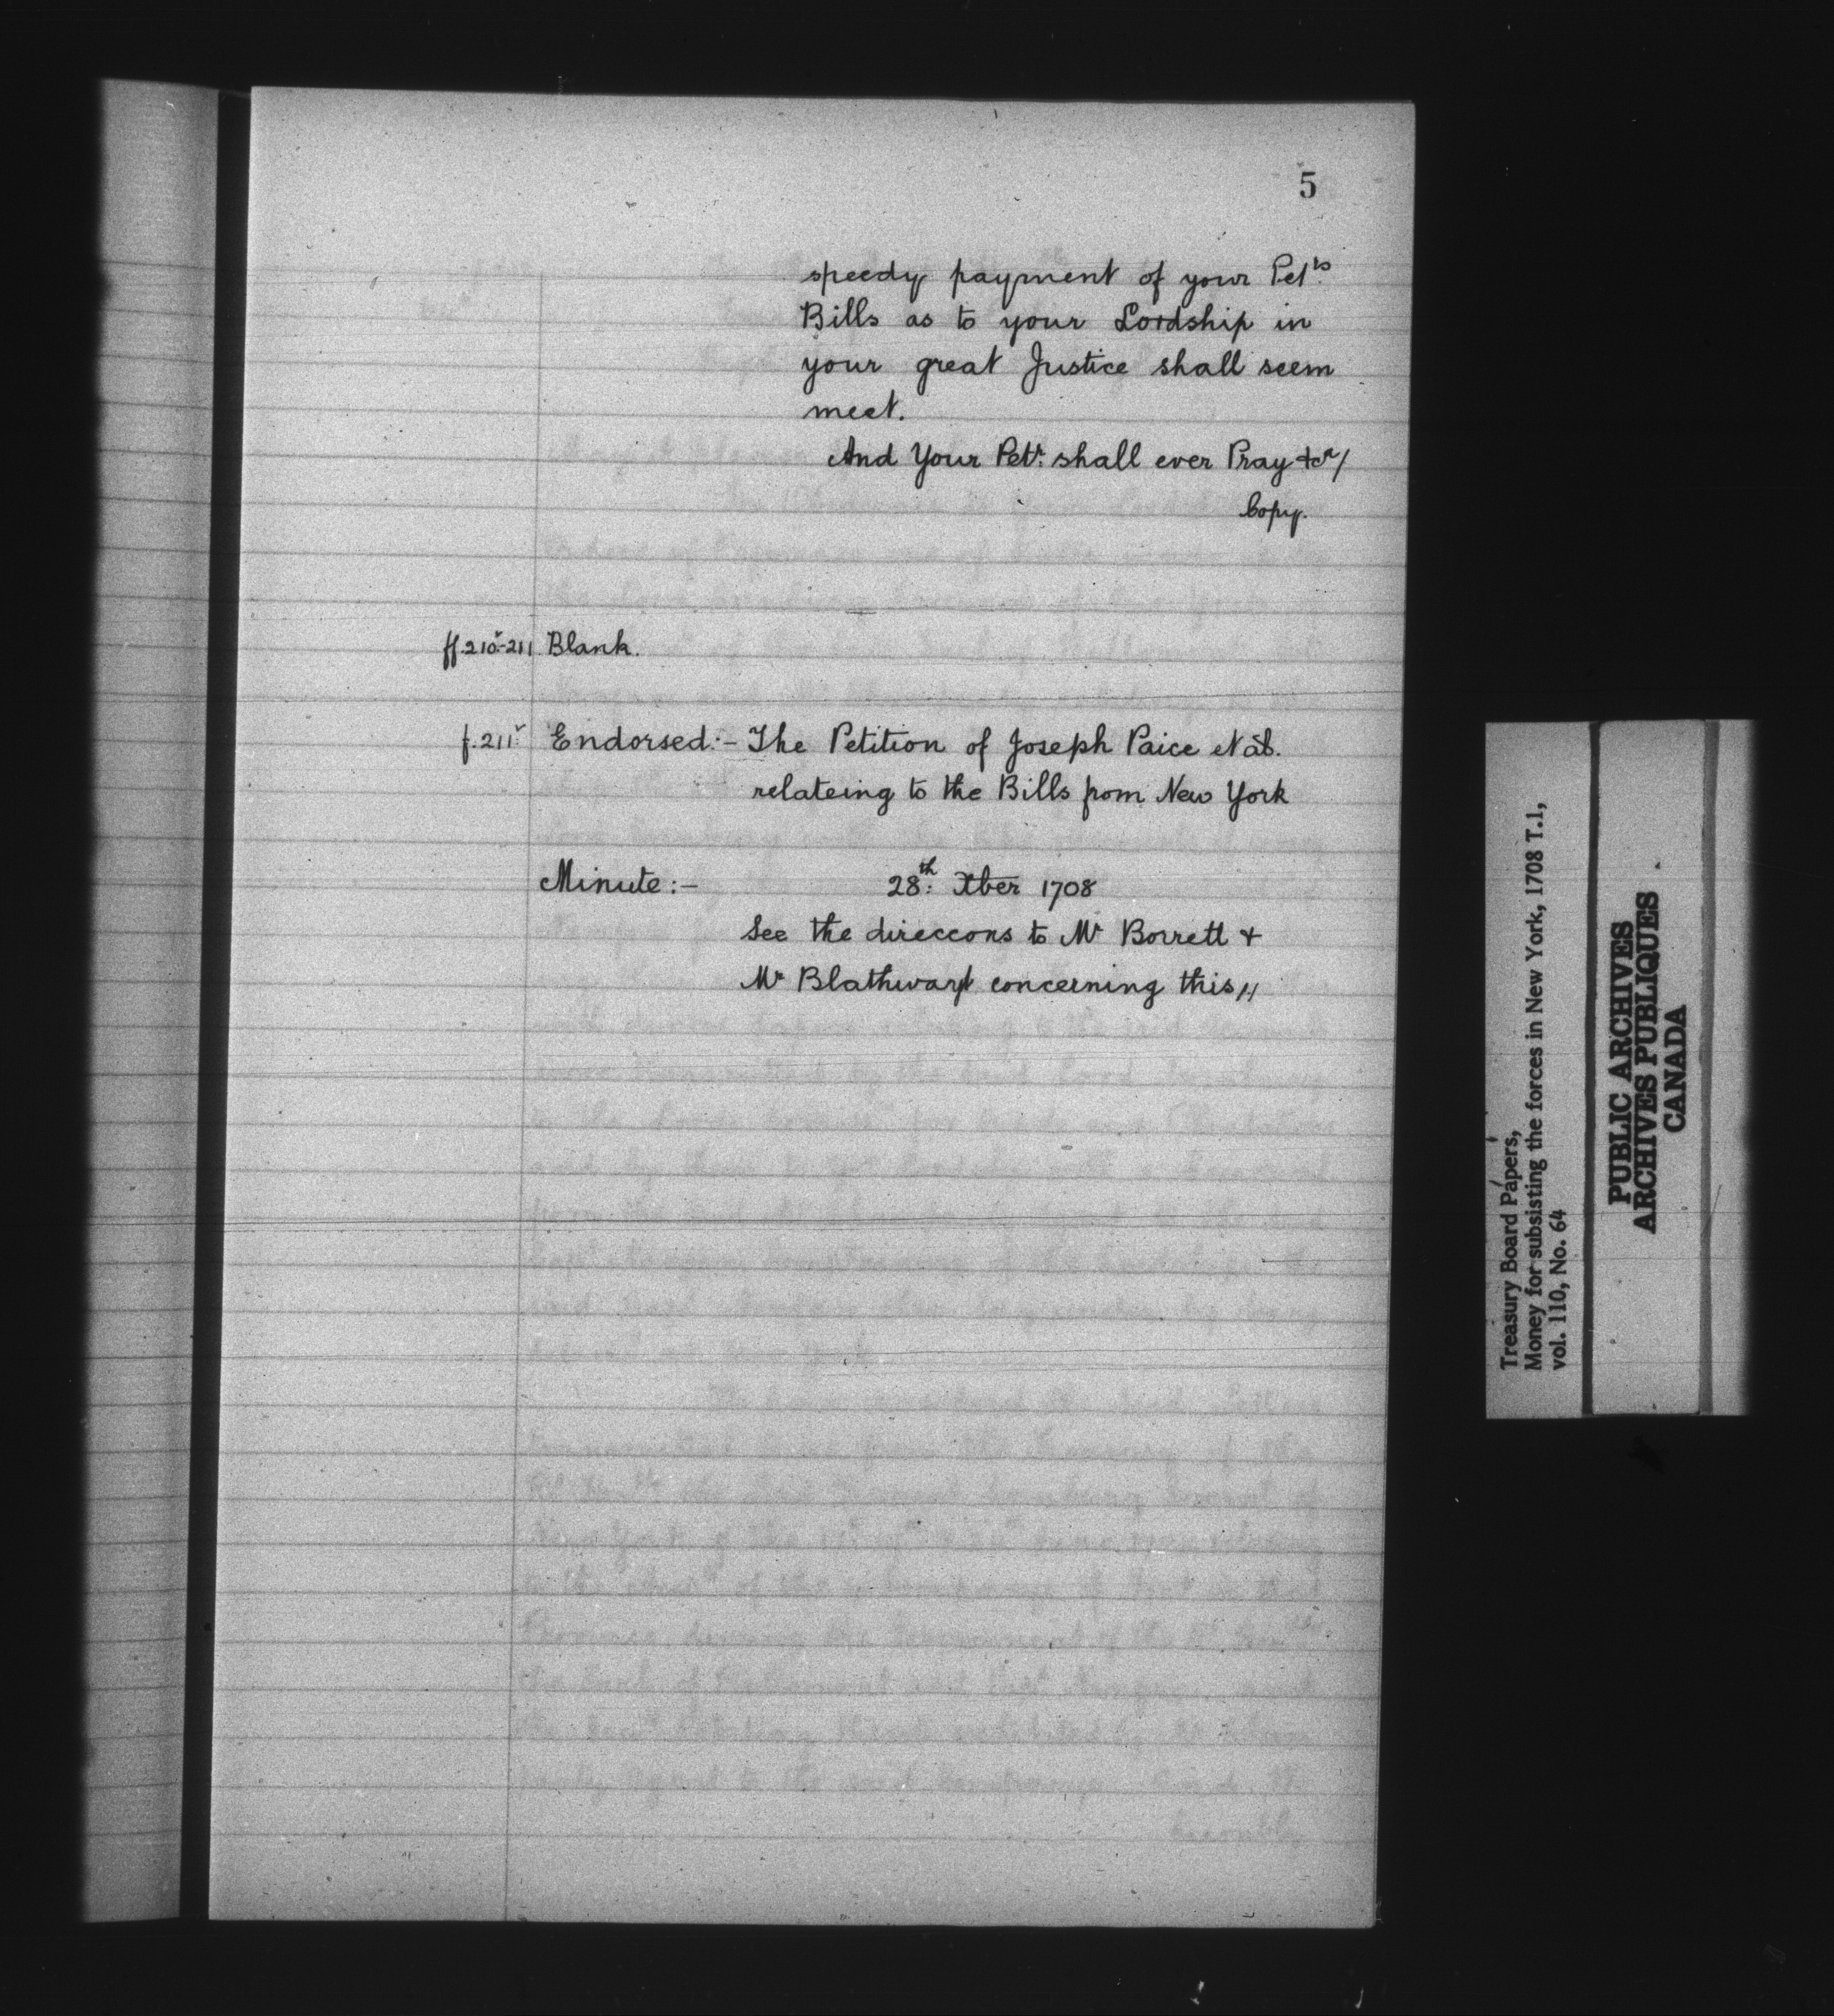 5
speedy payment of your Petrs
Bills as to your Lordship in
your great Justice shall seem
meet.
And Your Petr: shall ever Pray &ca/
Copy.
ff.210v-211 Blank.
f.211v Endorsed:- The Petition of Joseph Paice
relateing to the Bills from New York
Minute:- 28th: Xber 1708
See the direccons to Mr Borrett &
Mr Blathwayt concerning this//
Treasury Board Papers,
Money for subsisting the forces in New York, 1708 T.1,
vol. 110, No. 64
PUBLIC ARCHIVES
ARCHIVES PUBLIQUES
CANADA